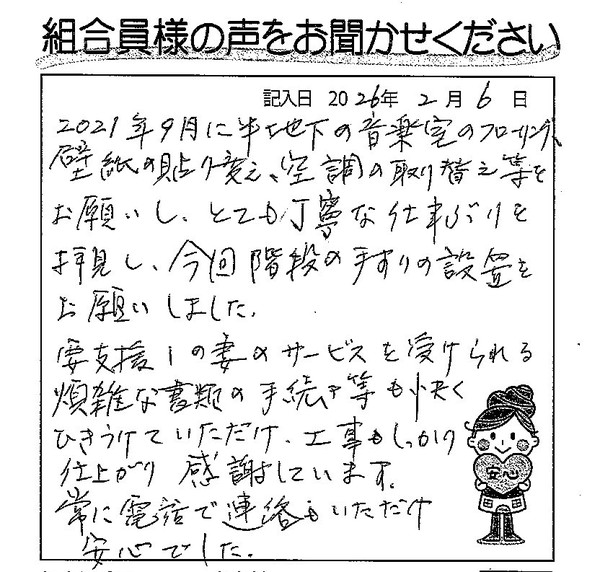 組合員様の声をお聞かせください
記入日 2026年 2月 6日
2021年9月に半地下の音楽室のフローリング、
壁紙の貼り変え、空調の取り替え等を
お願いし、とても丁寧な仕事ぶりを
拝見し、今回階段の手すりの設置を
お願いしました。
要支援1の妻のサービスを受けられる
煩雑な書類の手続き等も快く
ひきうけていただけ、工事もしっかり
仕上がり 感謝しています。
常に電話で連絡もいただけ
安心でした。
安心